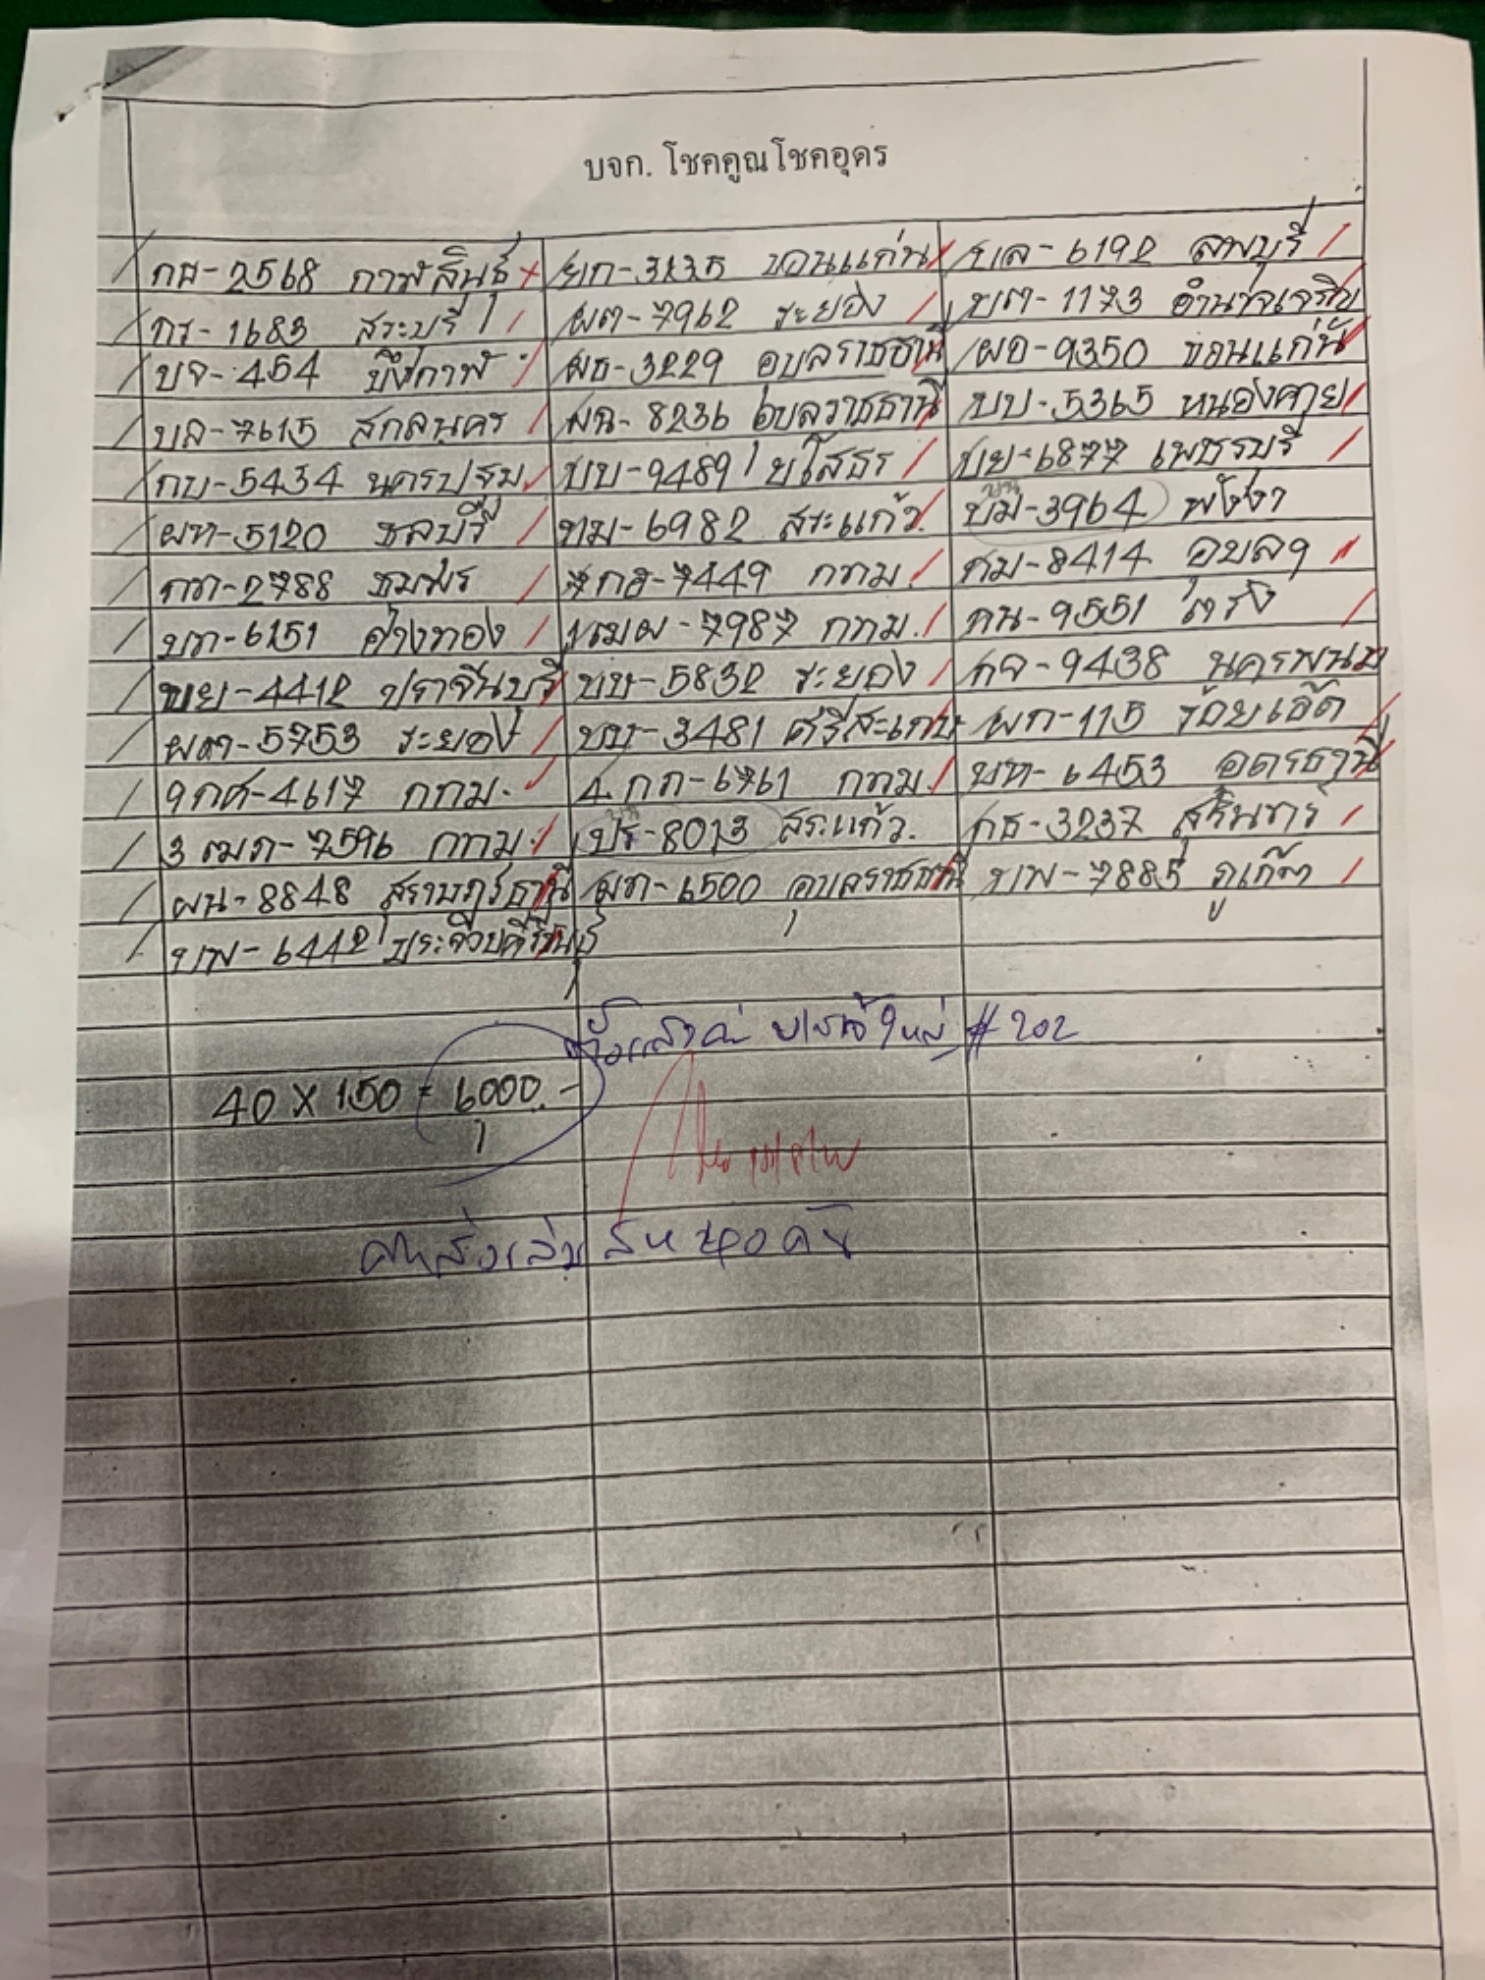 บจก. โชคคูณโชคอุดร
กส-2568 กาฬสินธุ์ ยก-3235 ขอนแก่น ขล-6192 ลพบุรี
กร-1683 สระบุรี ผต-7962 ระยอง บต-1173 อำนาจเจริญ
บจ-454 บึงกาฬ ผธ-3229 อุบลราชธานี ผอ-9350 ขอนแก่น
บล-7615 สกลนคร ผฉ-8236 อุบลราชธานี บบ-5365 หนองคาย
กบ-5434 นครปฐม บบ-9489 ยโสธร บย-6877 เพชรบุรี
ผท-5120 ชลบุรี ทม-6982 สระแก้ว บม-3964 พังงา
กท-2788 ชุมพร 7กฮ-7449 กทม. กม-8414 อุบลฯ
บท-6151 อ่างทอง 1ฒผ-7987 กทม. กน-9551 ตรัง
ขย-4412 ปราจีนบุรี ขบ-5832 ระยอง กจ-9438 นครพนม
ผต-5753 ระยอง บบ-3481 ศรีสะเกษ ผก-115 ร้อยเอ็ด
9กศ-4617 กทม. 4กภ-6761 กทม. บท-6453 อุดรธานี
3ฒภ-7596 กทม. ปร-8013 สระแก้ว. กธ-3237 สุรินทร์
ผน-8848 สุราษฎร์ธานี ผก-6500 อุบลราชธานี บพ-7885 ภูเก็ต
บพ-6442 ประจวบคีรีขันธ์
# 202
40 X 150 = 6000.-